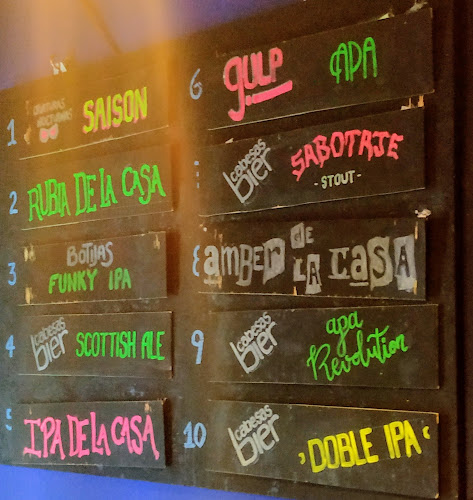 1
CRIATURAS
NOCTURNAS
SAISON
2
RUBIA DE LA CASA
3
BOTIJAS
FUNKY IPA
4
cabesas
bier
SCOTTISH ALE
5
IPA DE LA CASA
6
gULP APA
cabesas
bier
SABOTAJE
- STOUT -
8
amBER de LA CaSA
9
cabesas
bier
apa
Revolution
10
cabesas
bier
DOBLE IPA